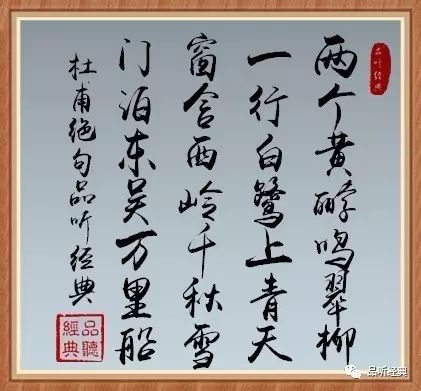 品听经典
两个黄鹂鸣翠柳
一行白鹭上青天
窗含西岭千秋雪
门泊东吴万里船
杜甫绝句品听经典
品聽
經典
品听经典